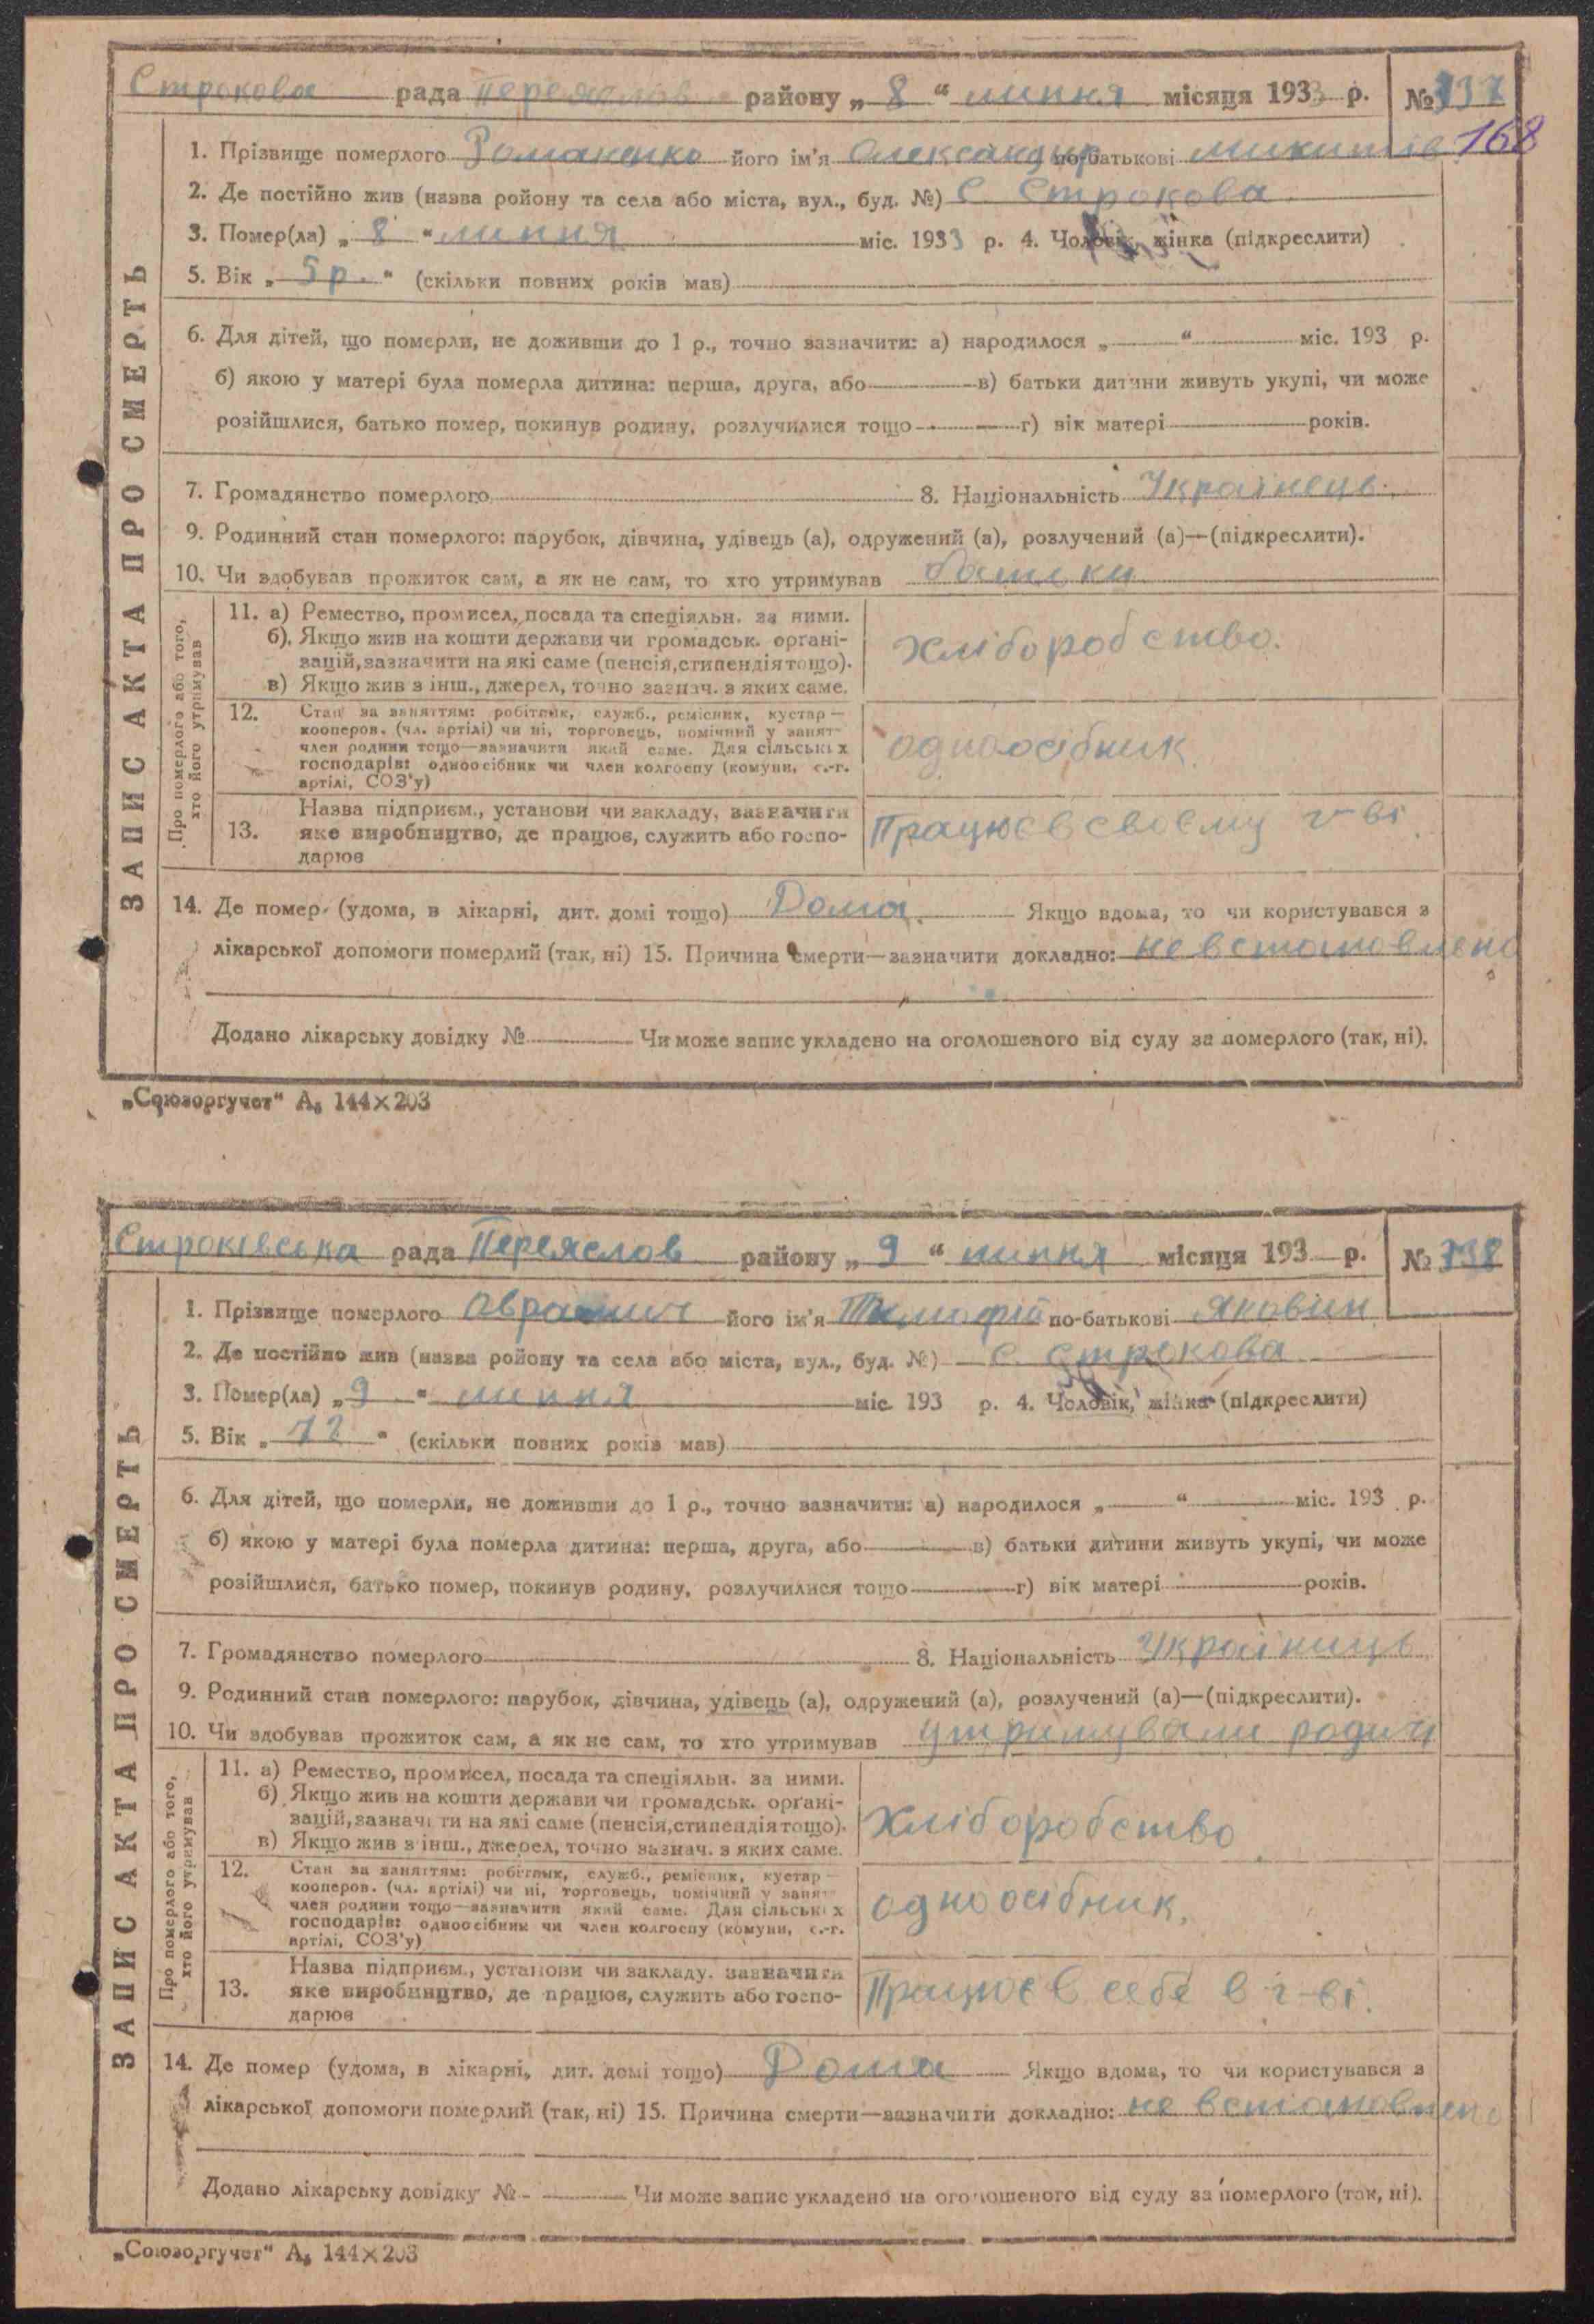 Строкова рада Переяслов району „ 8 “ липня місяця 1933 р. № 137
168
1. Прізвище померлого Романенко його ім'я Олександр по-батькові Микитів
2. Де постійно жив (назва ройону та села або міста, вул., буд. №) С. Строкова
3. Помер(ла) „ 8 “ липня міс. 1933 р. 4. Чоловік, жінка (підкреслити)
5. Вік „ 5 р. “ (скільки повних років мав)
6. Для дітей, що померли, не доживши до 1 р., точно зазначити: а) народилося „ “ міс. 193 р.
б) якою у матері була померла дитина: перша, друга, або в) батьки дитини живуть укупі, чи може
розійшлися, батько помер, покинув родину, розлучилися тощо г) вік матері років.
7. Громадянство померлого 8. Національність Українець.
9. Родинний стан померлого: парубок, дівчина, удівець (а), одружений (а), розлучений (а)—(підкреслити).
10. Чи здобував прожиток сам, а як не сам, то хто утримував батьки
Про померлого або того, хто його утримував
11. а) Ремество, промисел, посада та спеціяльн. за ними.
б). Якщо жив на кошти держави чи громадськ. органі-
зацій, зазначити на які саме (пенсія, стипендія тощо).
в) Якщо жив з інш., джерел, точно зазнач. з яких саме.
Хліборобство.
12. Стан за заняттям: робітник, служб., ремісник, кустар —
кооперов. (чл. артілі) чи ні, торговець, помічний у занят-
член родини тощо—зазначити який саме. Для сільських
господарів: одноосібник чи член колгоспу (комуни, с.-г.
артілі, СОЗ'у)
одноосібник.
13. Назва підприєм., установи чи закладу, зазначити
яке виробництво, де працює, служить або госпо-
дарює
Працює в своєму г-ві.
14. Де помер (удома, в лікарні, дит. домі тощо) Дома. Якщо вдома, то чи користувався з
лікарської допомоги померлий (так, ні) 15. Причина смерти—зазначити докладно: не встановлено
Додано лікарську довідку № Чи може запис укладено на оголошеного від суду за померлого (так, ні).
ЗАПИС АКТА ПРО СМЕРТЬ
„Союзоргучет“ А₅ 144×203
Строківська рада Переяслов району „ 9 “ липня місяця 193 р. № 138
1. Прізвище померлого його ім'я Тимофій по-батькові Яковин
2. Де постійно жив (назва ройону та села або міста, вул., буд. №) С. Строкова
3. Помер(ла) „ 9 “ липня міс. 193 р. 4. Чоловік, жінка (підкреслити)
5. Вік „ 72 “ (скільки повних років мав)
6. Для дітей, що померли, не доживши до 1 р., точно зазначити: а) народилося „ “ міс. 193 р.
б) якою у матері була померла дитина: перша, друга, або в) батьки дитини живуть укупі, чи може
розійшлися, батько помер, покинув родину, розлучилися тощо г) вік матері років.
7. Громадянство померлого 8. Національність Українець
9. Родинний стан померлого: парубок, дівчина, удівець (а), одружений (а), розлучений (а)—(підкреслити).
10. Чи здобував прожиток сам, а як не сам, то хто утримував утримували родичі
Про померлого або того, хто його утримував
11. а) Ремество, промисел, посада та спеціяльн. за ними.
б) Якщо жив на кошти держави чи громадськ. органі-
зацій, зазначити на які саме (пенсія, стипендія тощо).
в) Якщо жив з інш., джерел, точно зазнач. з яких саме.
Хліборобство
12. Стан за заняттям: робітник, служб., ремісник, кустар —
кооперов. (чл. артілі) чи ні, торговець, помічний у занят-
член родини тощо—зазначити який саме. Для сільських
господарів: одноосібник чи член колгоспу (комуни, с.-г.
артілі, СОЗ'у)
одноосібник.
13. Назва підприєм., установи чи закладу, зазначити
яке виробництво, де працює, служить або госпо-
дарює
Працює в себе в г-ві.
14. Де помер (удома, в лікарні, дит. домі тощо) Дома Якщо вдома, то чи користувався з
лікарської допомоги померлий (так, ні) 15. Причина смерти—зазначити докладно: не встановлено
Додано лікарську довідку № Чи може запис укладено на оголошеного від суду за померлого (так, ні).
ЗАПИС АКТА ПРО СМЕРТЬ
„Союзоргучет“ А₅ 144×203